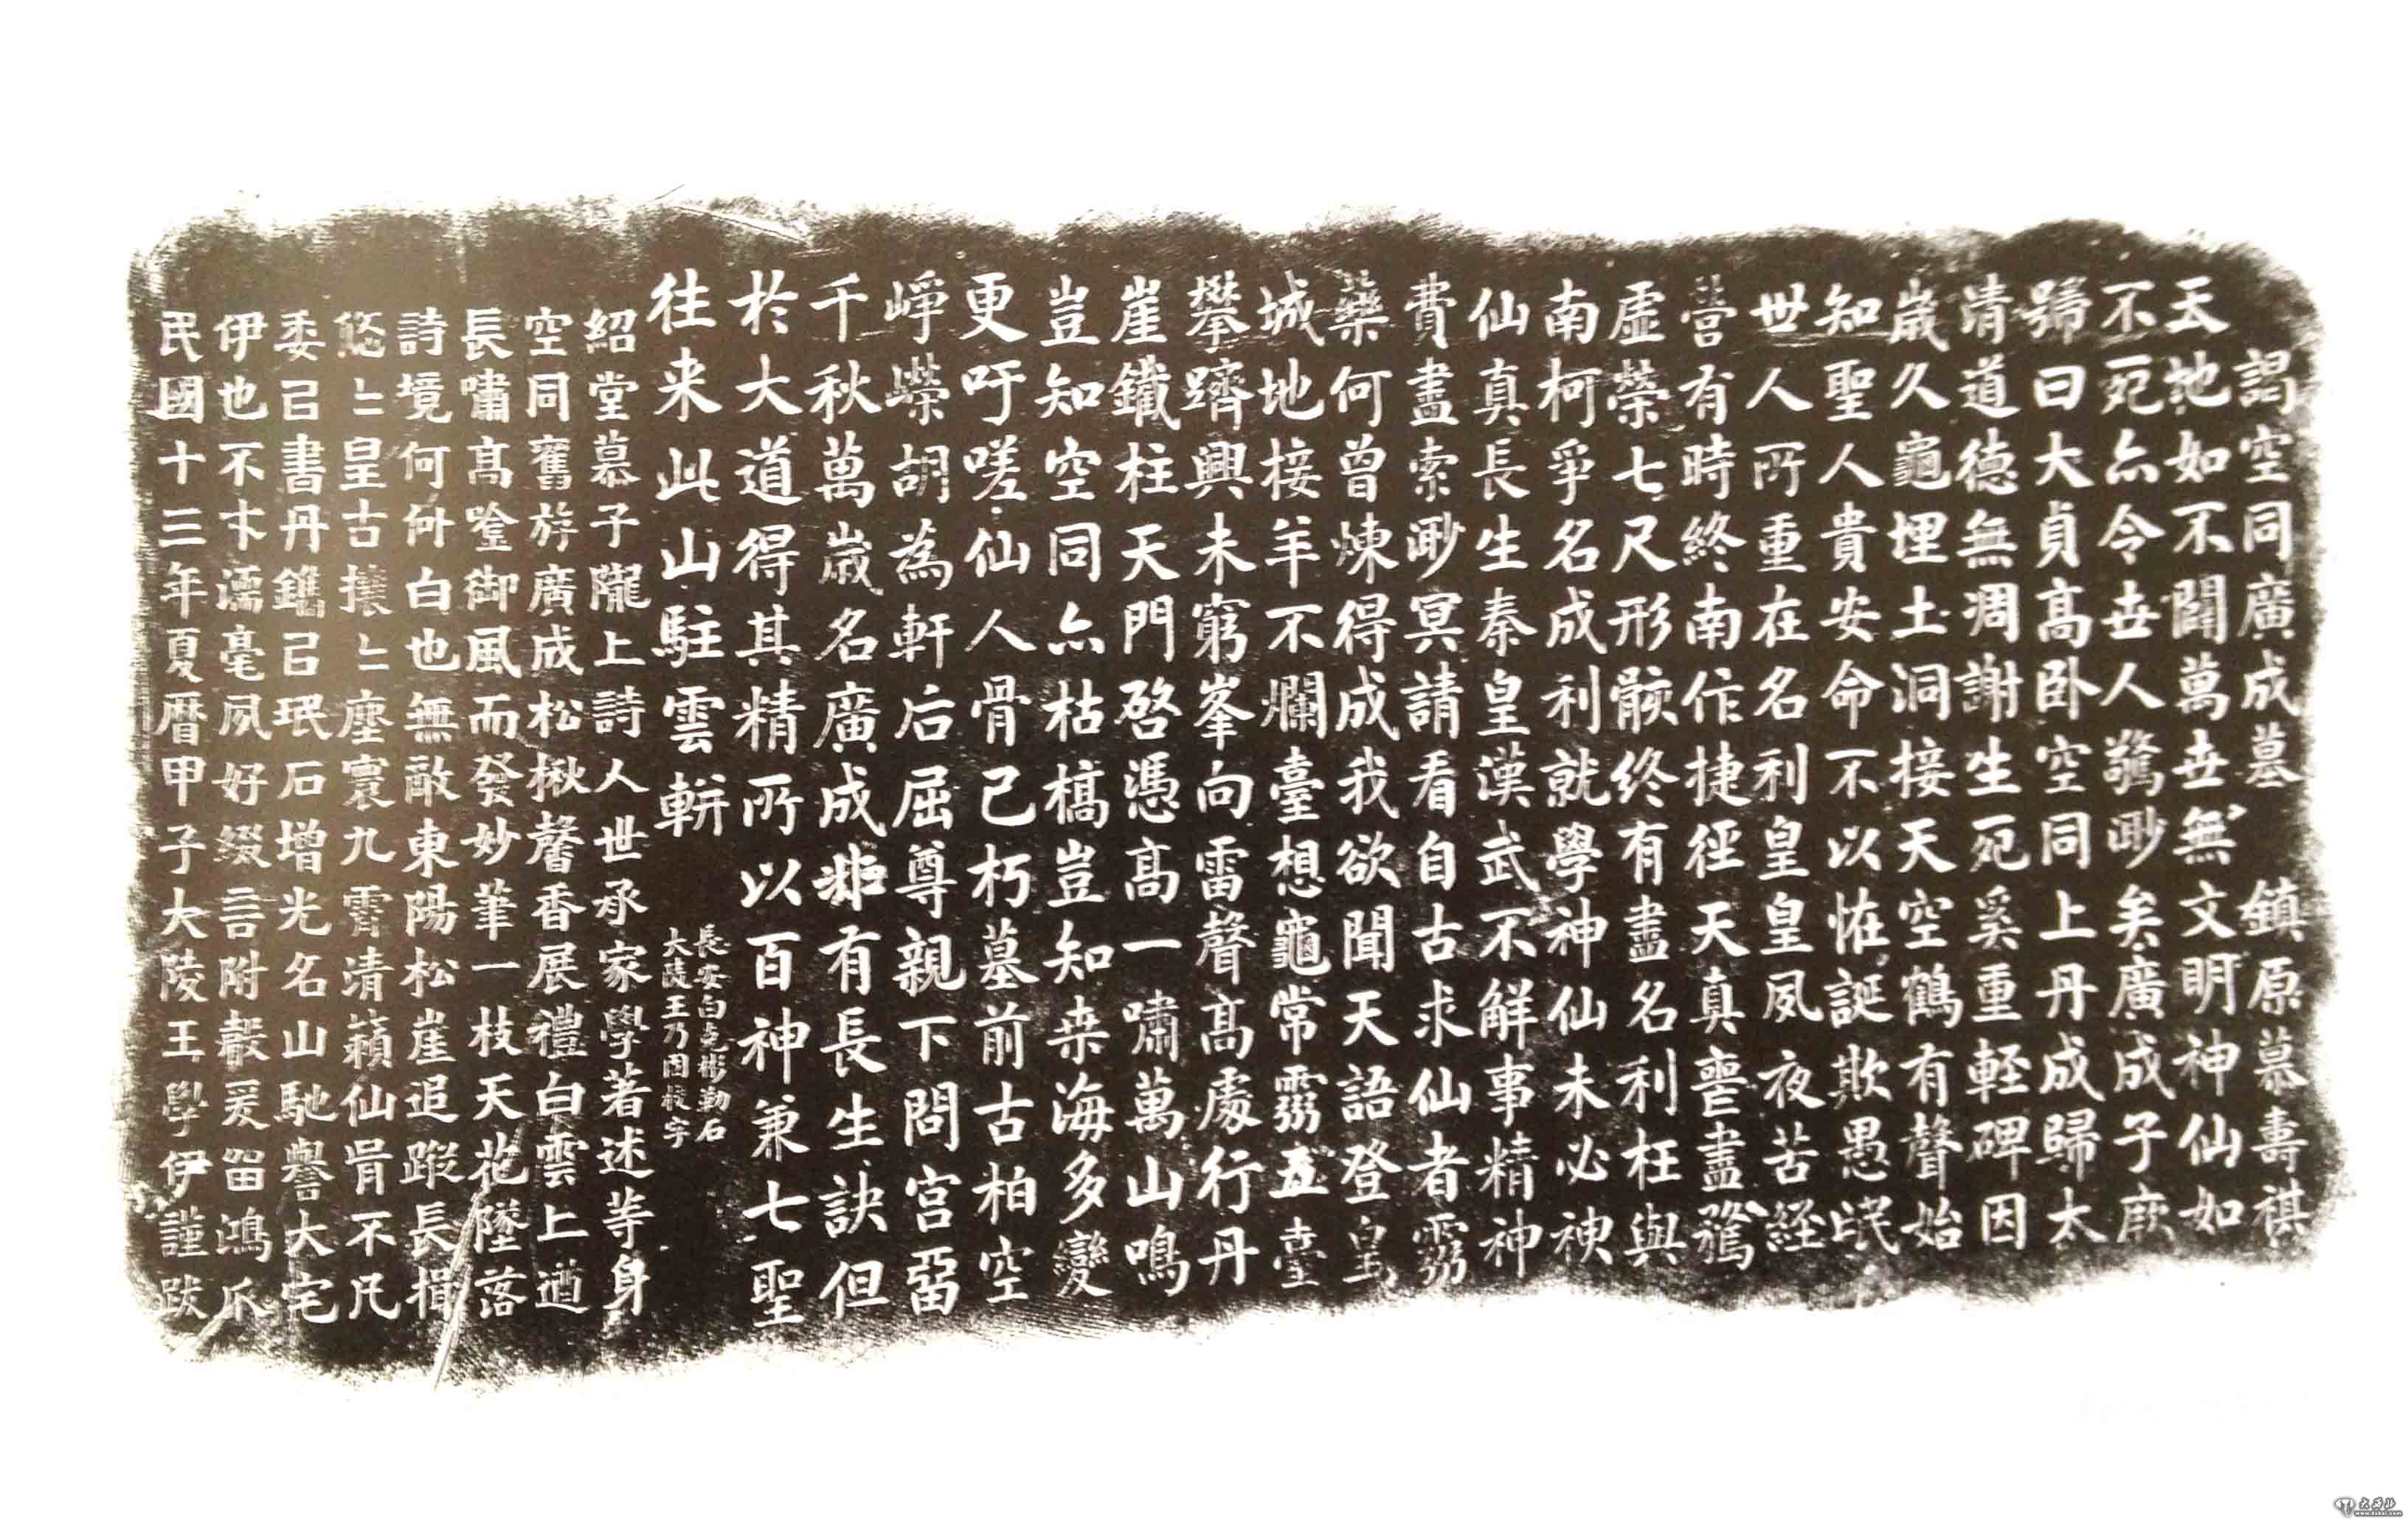 謁空同廣成墓　鎮原慕壽祺
天地如不闢萬世無文明神仙如
不死亦令世人驚渺矣廣成子厥
號曰大貞高卧空同上丹成歸太
清道德無凋謝生死奚重輕碑因
歲久龜埋土洞接天空鶴有聲始
知聖人貴安命不以怪誕欺愚氓
世人所重在名利皇皇夙夜苦經
營有時終南作捷徑天真喪盡騖
虛榮七尺形骸終有盡名利枉與
南柯爭名成利就學神仙未必神
仙真長生秦皇漢武不解事精神
費盡索渺冥請看自古求仙者霛
藥何曾煉得成我欲聞天語登皇
城地接羊不爛臺想龜常霛五臺
攀躋興未窮峯向雷聲高處行丹
崖鐵柱天門啓憑高一嘯萬山鳴
豈知空同亦枯槁豈知桒海多變
更吁嗟仙人骨已朽墓前古柏空
崢嶸胡為軒后屈尊親下問宮畱
千秋萬歲名廣成非有長生訣但
於大道得其精所以百神兼七聖
往来此山駐雲軿
長安白克彬勒石
大陵王乃國校字
紹堂慕子隴上詩人世承家學著述等身
空同舊斿廣成松楸馨香展禮白雲上遒
長嘯高登御風而發妙筆一枝天花墜落
詩境何何白也無敵東陽松崖追蹤長揖
悠〻皇古攘〻塵寰九霄清籟仙骨不凡
委㠯書丹鐫㠯珉石增光名山馳譽大宅
伊也不才濡毫夙好綴言附嚴爰畱鴻爪
民國十三年夏曆甲子大陵王學伊謹跋
大西北
www.dxbei.com